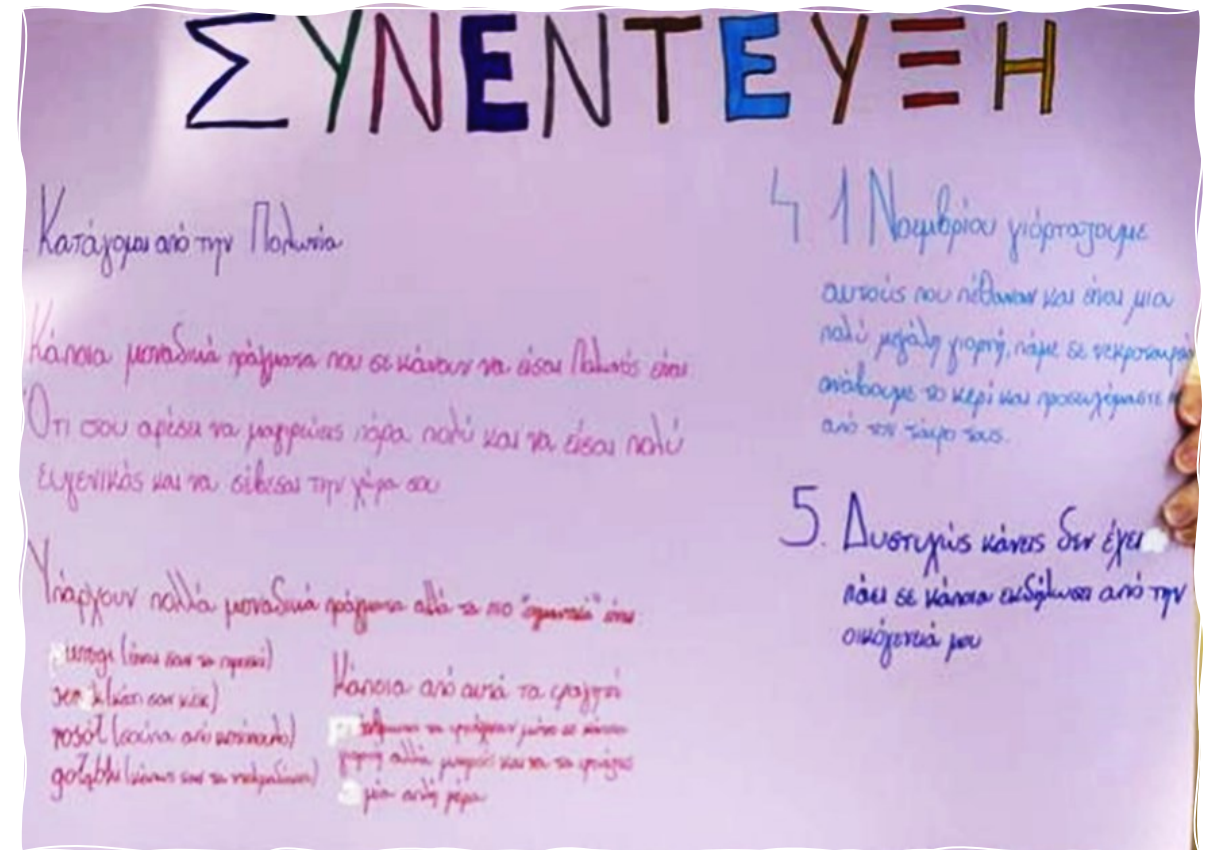 ΣΥΝΕΝΤΕΥΞΗ
Κατάγομαι από την Πολωνία
Κάποια μοναδικά πράγματα που σε κάνουν να είσαι Πολωνός είναι
Ότι σου αρέσει να μαγειρεύεις πάρα πολύ και να είσαι πολύ
ευγενικός και να σέβεσαι την χώρα σου
Υπάρχουν πολλά μοναδικά πράγματα αλλά τα πιο "σημαντικά" είναι
(είναι σαν το
(κάτι σαν κέικ)
rosół (σούπα από κοτόπουλο)
gołąbki (κάπως σαν τα
Κάποια από αυτά τα φαγητά
τα τρώγαμε μόνο σε κάποια
γιορτή αλλά μπορείς και να τα τρώγεις
μία απλή μέρα
4 1 Νοεμβρίου γιόρταζουμε
αυτούς που πέθαναν και είναι μια
πολύ μεγάλη γιορτή, πάμε σε
ανάβουμε το κερί και προσευχόμαστε
από τον τάφο τους.
5. Δυστυχώς κάνεις δεν έχει
πάει σε κάποια εκδήλωση από την
οικόγενειά μου